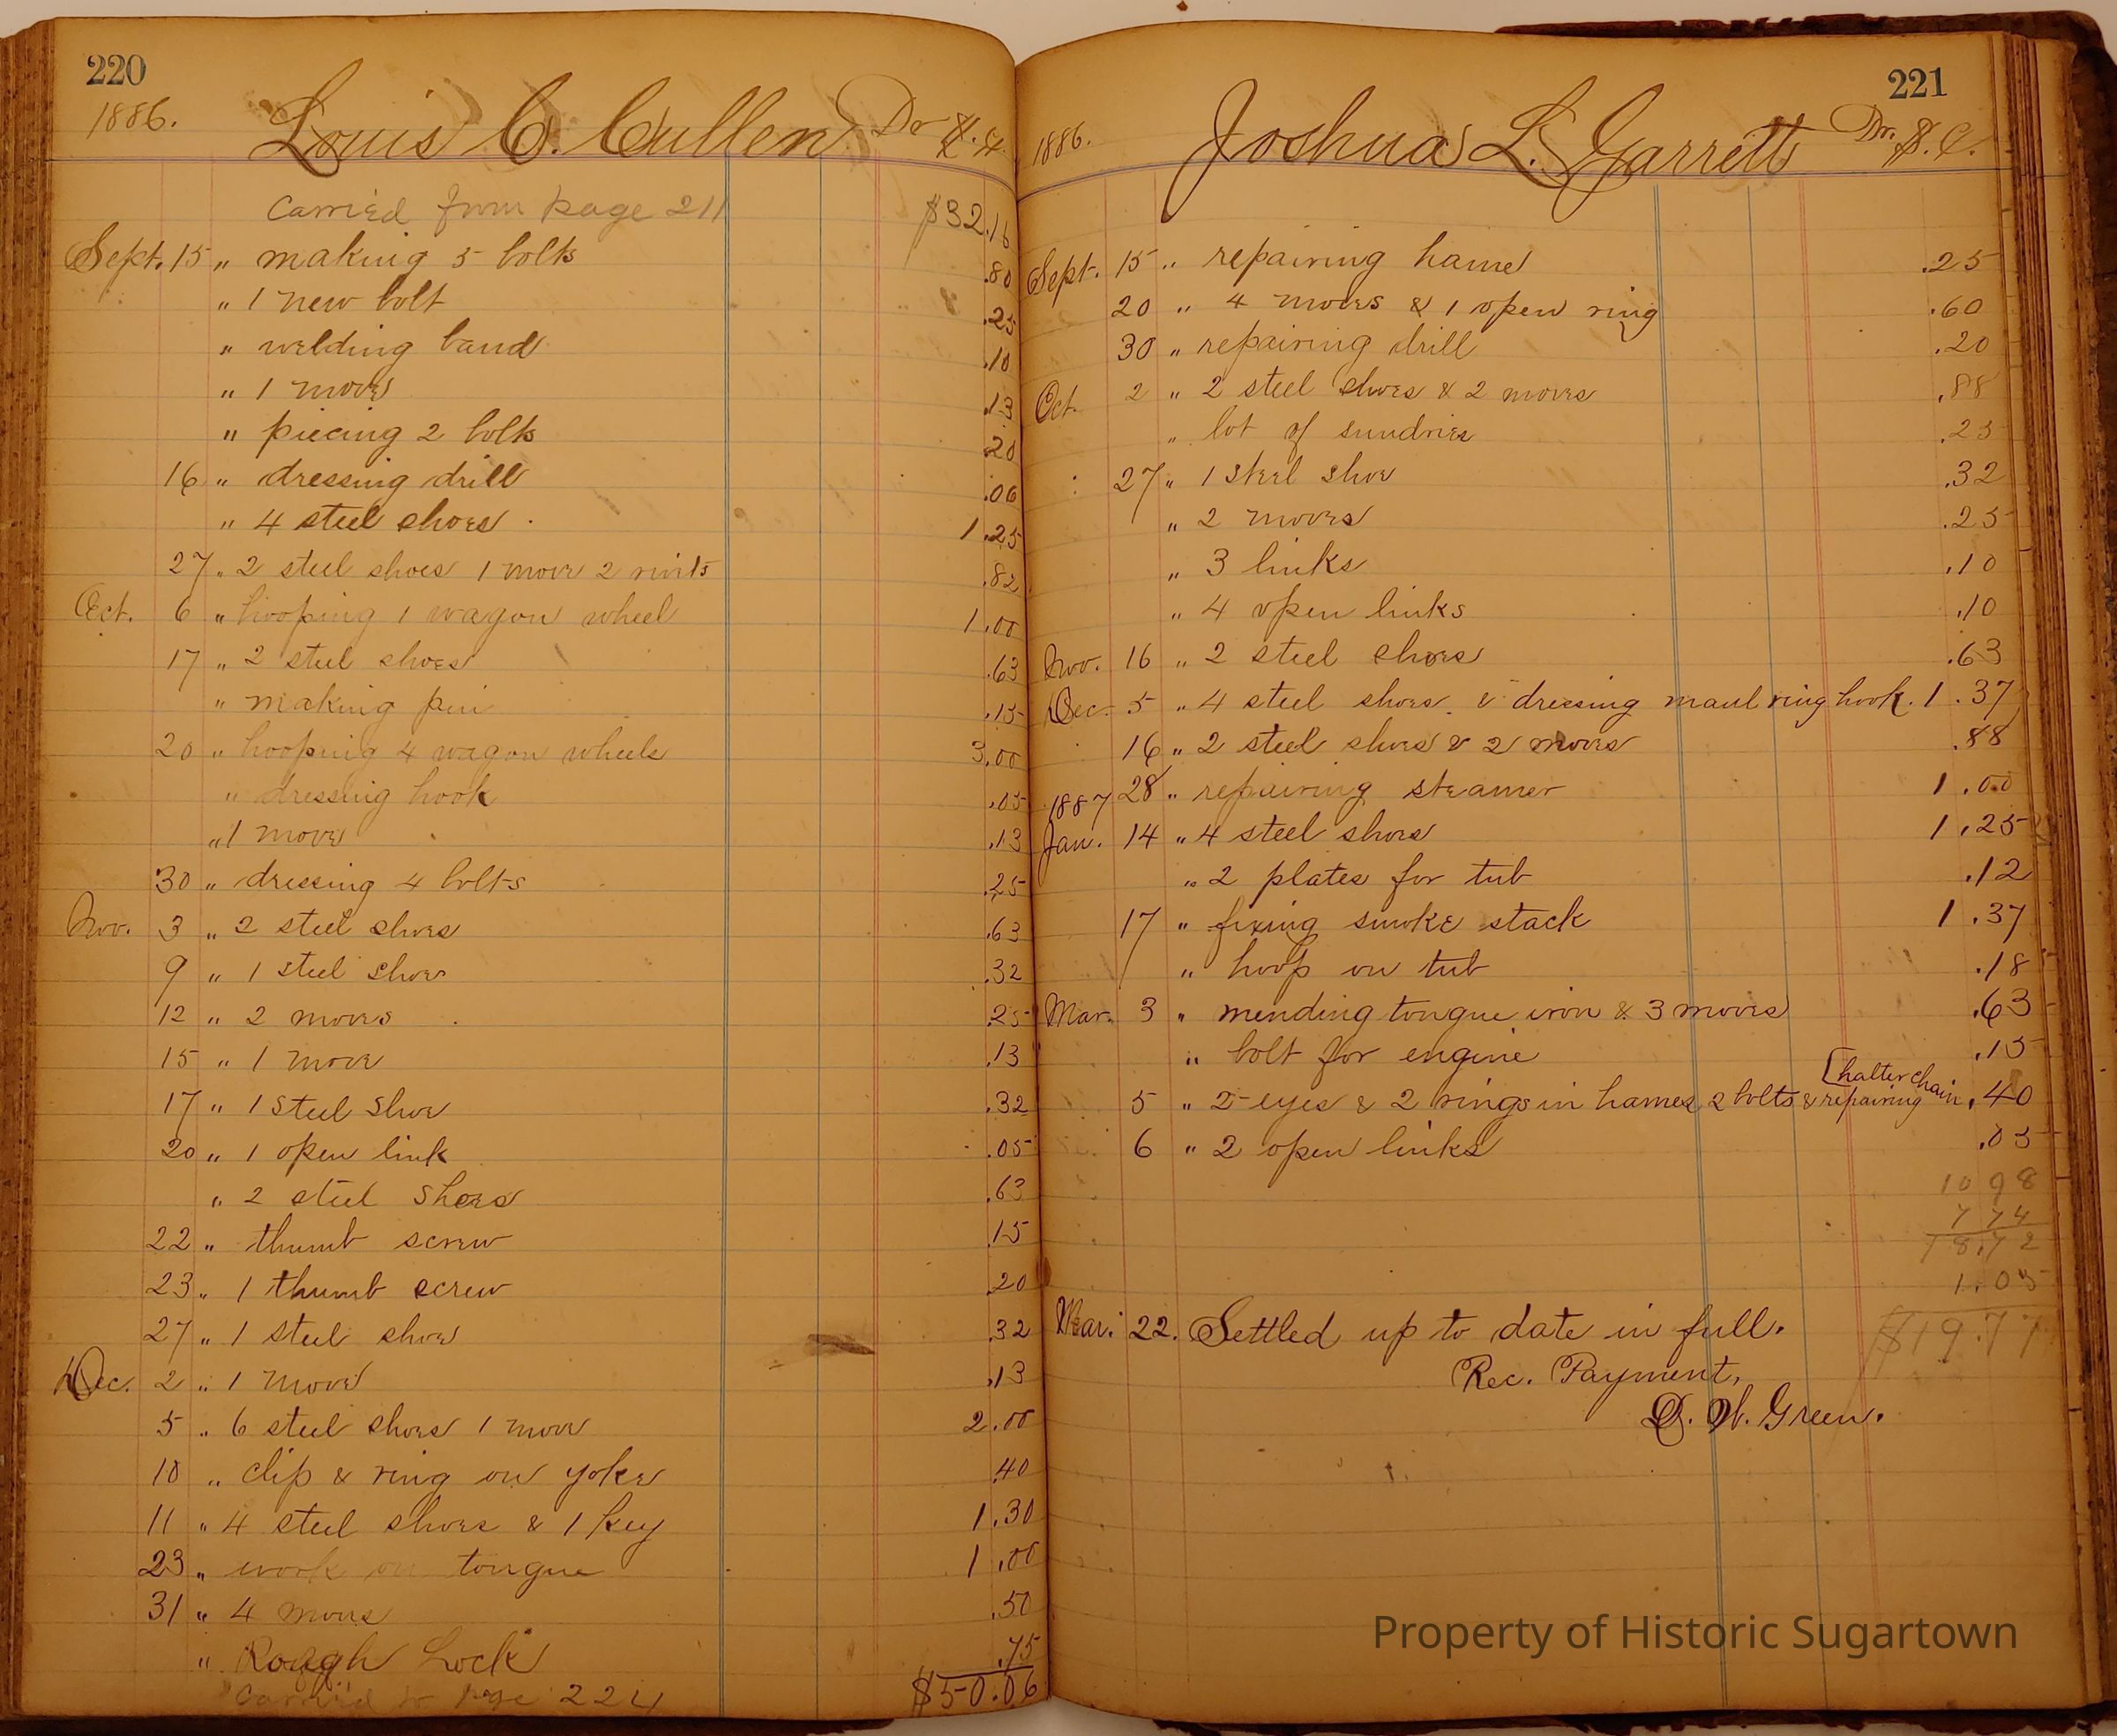 220
1886. Louis C. Cullen Dr $. c.
Carried from page 211 $32.16
Sept. 15 „ making 5 bolts .80
„ 1 new bolt .25
„ welding band .10
„ 1 move .13
„ piecing 2 bolts .20
16 „ dressing drill .06
„ 4 steel shoes 1.25
27 „ 2 steel shoes 1 move 2 rivits .82
Oct. 6 „ hooping 1 wagon wheel 1.00
17 „ 2 steel shoes .63
„ making pin .15
20 „ hooping 4 wagon wheels 3.00
„ dressing hook .05
„ 1 move .13
30 „ dressing 4 bolts .25
Nov. 3 „ 2 steel shoes .63
9 „ 1 steel shoe .32
12 „ 2 moves .25
15 „ 1 move .13
17 „ 1 steel shoe .32
20 „ 1 open link .05
„ 2 steel shoes .63
22 „ thumb screw .15
23 „ 1 thumb screw .20
27 „ 1 steel shoe .32
Dec. 2 „ 1 move .13
5 „ 6 steel shoes 1 move 2.00
10 „ clip & ring on yoke .40
11 „ 4 steel shoes & 1 key 1.30
23 „ work on tongue 1.00
31 „ 4 moves .50
„ Rough Lock .75
Carried to page 224 $50.06
221
1886. Joshua L. Garrett Dr. $. C.
Sept. 15 „ repairing hame .25
20 „ 4 moves & 1 open ring .60
30 „ repairing drill .20
Oct. 2 „ 2 steel shoes & 2 moves .88
„ lot of sundries .25
27 „ 1 steel shoe .32
„ 2 moves .25
„ 3 links .10
„ 4 open links .10
Nov. 16 „ 2 steel shoes .63
Dec. 5 „ 4 steel shoes & dressing maul ring hook. 1.37
16 „ 2 steel shoes & 2 moves .88
28 „ repairing steamer 1.00
1887
Jan. 14 „ 4 steel shoes 1.25
„ 2 plates for tub .12
17 „ fixing smoke stack 1.37
„ hoop on tub .18
Mar. 3 „ mending tongue iron & 3 moves .63
„ bolt for engine .15
[halter chain
5 „ 2-eyes & 2 rings in hames 2 bolts & repairing .40
6 „ 2 open links .05
10 98
7 74
18.72
1.05
Mar. 22. Settled up to date in full. $19.77
Rec. Payment,
D. W. Green.
Property of Historic Sugartown